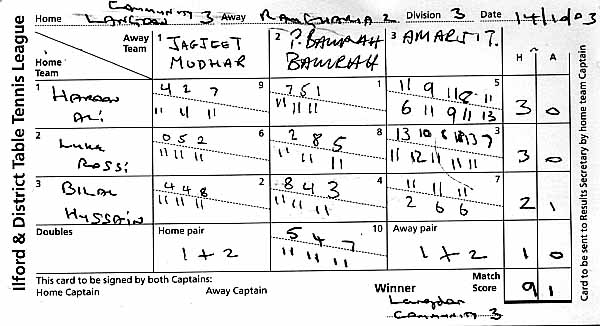 Ilford & District Table Tennis League
Community
Home Langdon 3 Away Ramgharia 2 Division 3 Date 14/10/03
Away Team 1 JAGJEET MUDHAR 2 P. BAURAH BAURAH 3 AMARJIT. H A
Home Team
1 HAROON ALI 4 2 7 9 7 5 1 1 11 9 11 8 11 5 3 0
11 4 11 11 11 11 6 11 9 11 13
2 LUKA ROSSI 0 5 2 6 2 8 5 8 13 10 8 3 3 0
11 11 11 11 11 11 11 12 11 11 11
3 BILAL HUSSAIN 4 4 8 2 8 4 3 4 11 11 11 7 2 1
11 11 11 11 11 11 2 6 6
Doubles Home pair 5 4 7 10 Away pair
1 + 2 11 11 11 1 + 2 1 0
This card to be signed by both Captains: Winner Match Score 9 1
Home Captain Away Captain Langdon Community 3
Card to be sent to Results Secretary by home team Captain